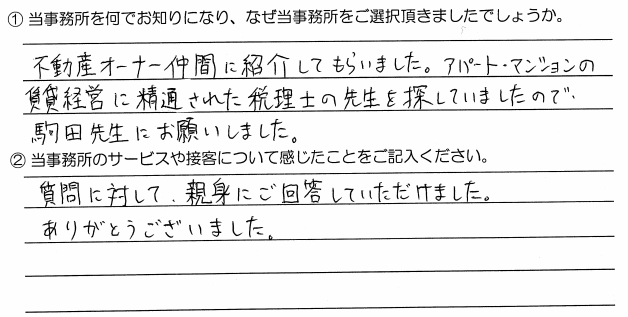 ① 当事務所を何でお知りになり、なぜ当事務所をご選択頂きましたでしょうか。
不動産オーナー仲間に紹介してもらいました。アパート・マンションの
賃貸経営に精通された税理士の先生を探していましたので、
駒田先生にお願いしました。
② 当事務所のサービスや接客について感じたことをご記入ください。
質問に対して、親身にご回答していただけました。
ありがとうございました。